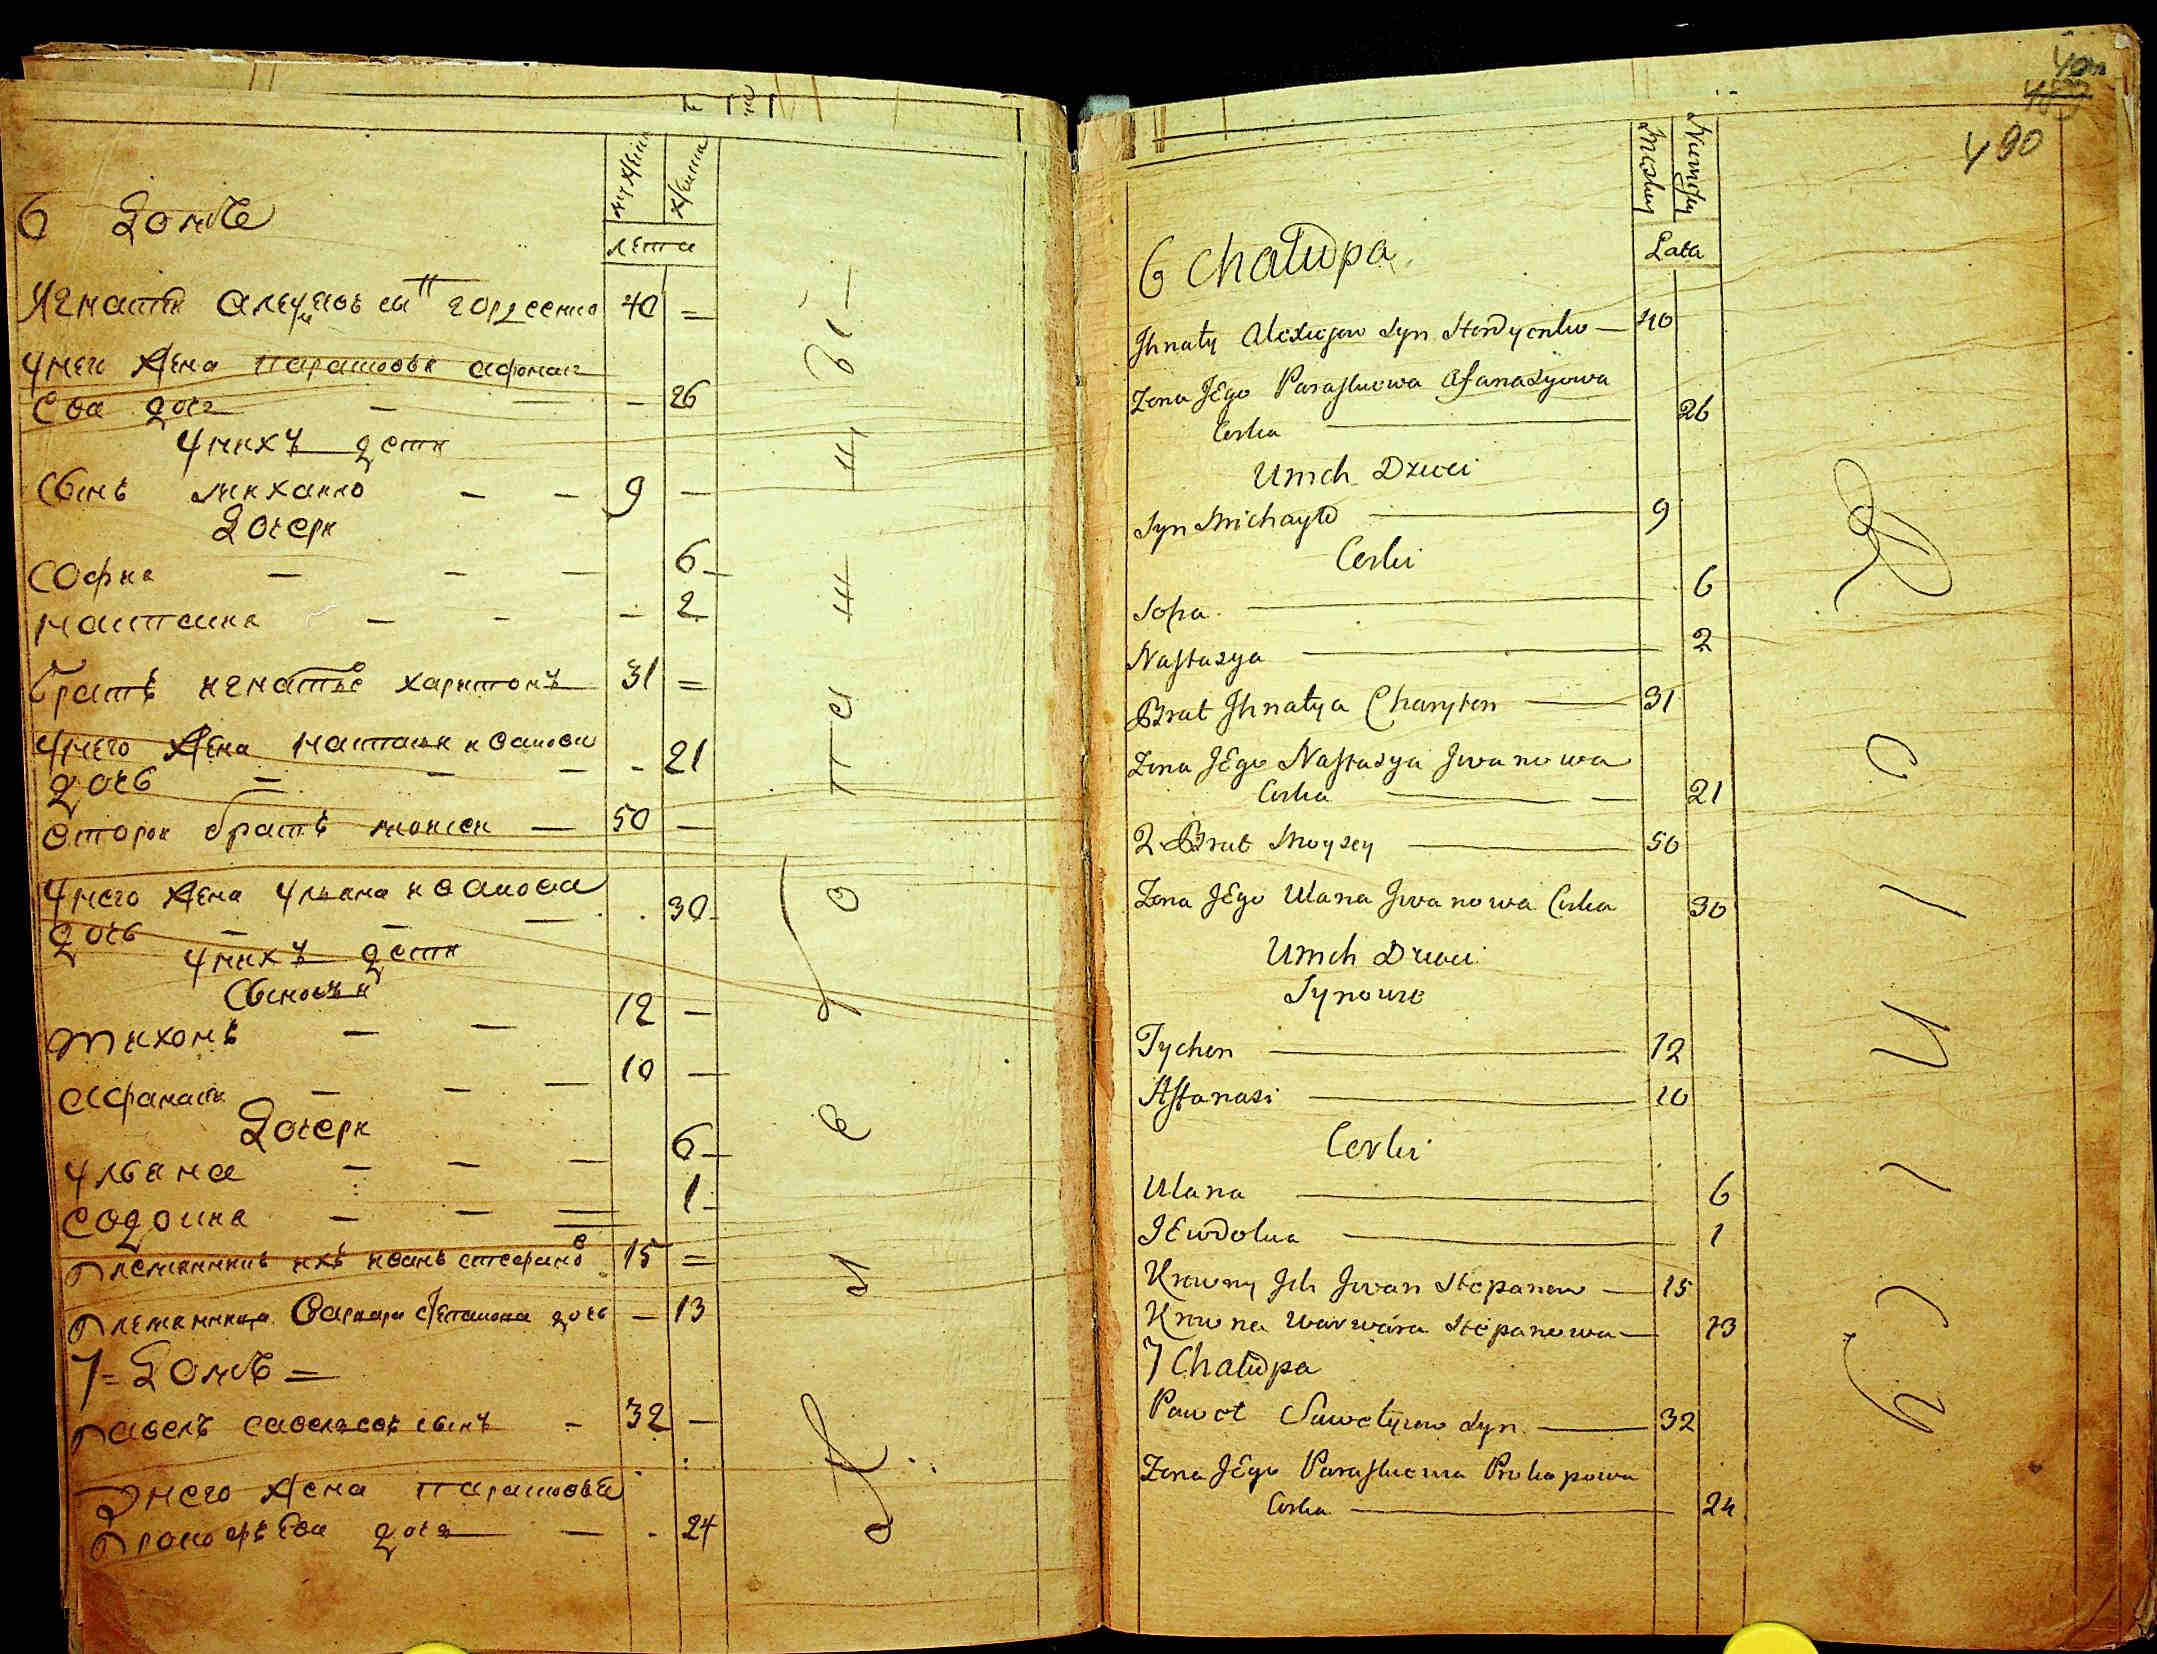 мужска
женска
лета
6 Домъ
Игнатій Алеѯѣовъ сынъ гордеенко 40 =
у него жена парасковья афонась
ева дочь — — — 26
у нихъ дети
Сынъ михаило — — 9 —
Дочери
София — — — 6
настасия — — — 2
братъ игнатья харитонъ 31 =
у него жена настасия иванова
дочь — — — 21
второй братъ моисей — 50 —
у него жена ульяна иванова
дочь — — — 30
у нихъ дети
Сыновья
тихонъ — — 12 —
Афанасий — — — 10 —
Дочери
ульяна — — — 6
еѵдокия — — 1
племянникъ ихъ иванъ степановъ 15 =
племянница варвара степанова дочь — 13
7 = Домъ =
павелъ савельевъ сынъ — 32 —
у него жена парасковья
прокофьева дочь — — 24
490
Męskey
Lata
6 Chałupa
Jhnaty Alexiejow Syn Hordyenko — 40
Zona JEgo Paraskowa Afanasyowa
Corka — 26
Unich Dzieci
Syn Michayło — 9
Corki
Sofia — 6
Nastazya — 2
Brat Jhnatya Charyton — 31
Zona JEgo Nastazya Jwanowa
Corka — 21
2 Brat Moyzey — 50
Zona JEgo Ulana Jwanowa Corka 30
Unich Dzieci
Synowie
Tychon — 12
Affanasi — 10
Corki
Ulana — 6
JEwdokia — 1
Krewny Jch Jwan Stepanow — 15
Krewna Warwara Stepanowa — 13
7 Chałupa
Paweł Sawełyiew Syn — 32
Zona JEgo Paraskowia Prokopowa
Corka — 24